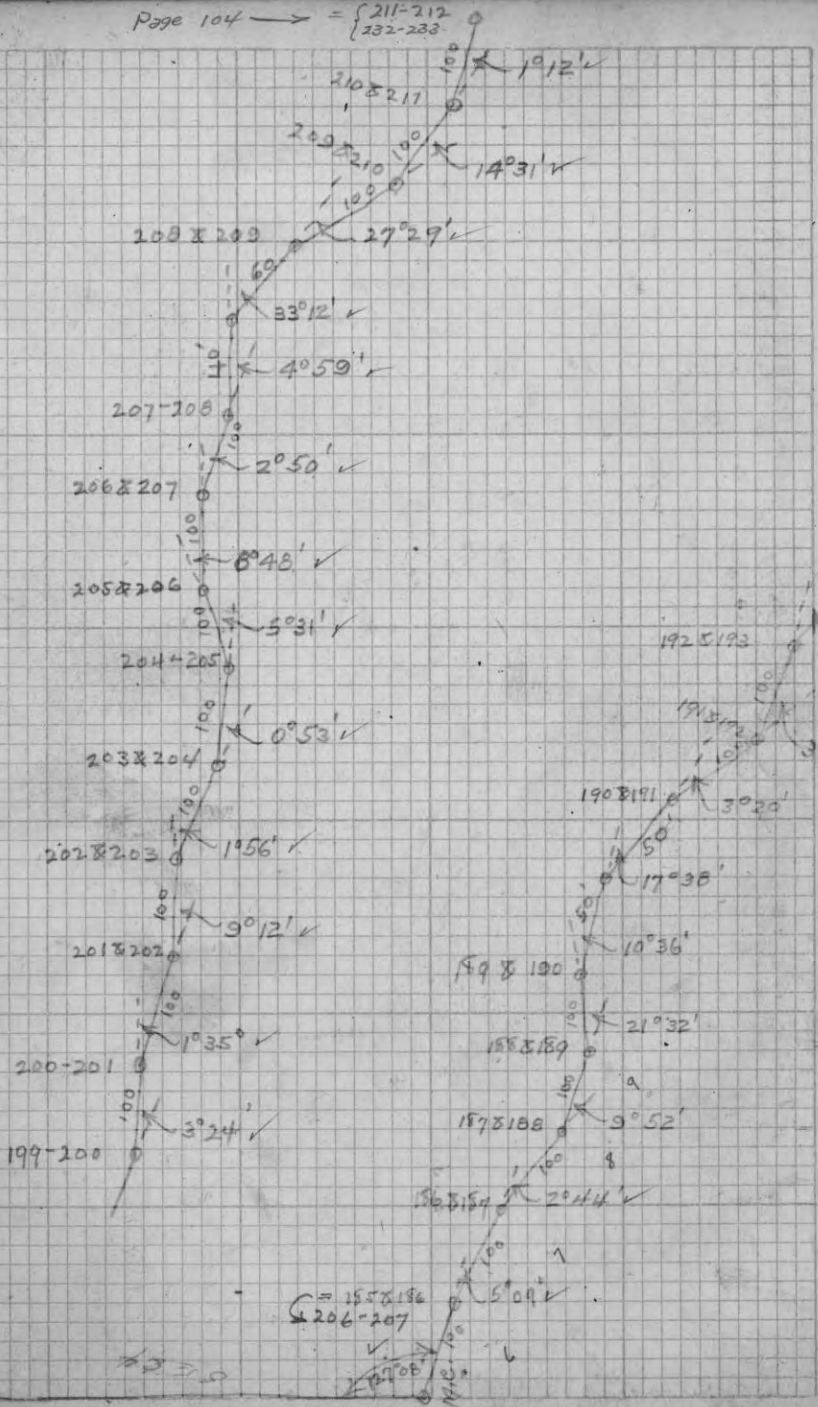 Page 104 → = {211-212
232-233
100
1°12' ✓
210 & 211
100
14°31' ✓
209 & 210
100
27°29' ✓
208 & 209
60
33°12' ✓
40
4°59' ✓
207-208
100
2°50' ✓
206 & 207
100
6°48' ✓
205 & 206
100
5°31' ✓
204-205
100
0°53' ✓
203 & 204
100
1°56' ✓
202 & 203
100
9°12' ✓
201 & 202
100
1°35° ✓
200-201
100
3°24' ✓
199-200
192 & 193
100
3
191 & 192
100
3°20'
190 & 191
50'
17°38'
50'
10°36'
189 & 190
100
21°32'
188 & 189
9
100
9°52'
187 & 188
100
8
2°44' ✓
186 & 187
100
7
5°09' ✓
= 185 & 186
206-207
100
✓
6
127°08'